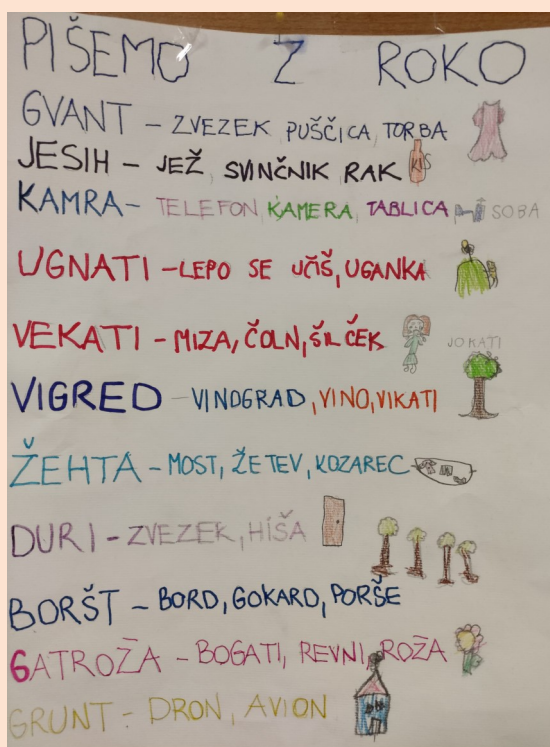 PIŠEMO Z ROKO
GVANT – ZVEZEK PUŠČICA, TORBA
JESIH – JEŽ SVINČNIK RAK KIS
KAMRA – TELEFON, KAMERA, TABLICA, SOBA
UGNATI – LEPO SE UČIŠ, UGANKA
VEKATI – MIZA, ČOLN, ŠILČEK
JOKATI
VIGRED – VINOGRAD, VINO, VIKATI
ŽEHTA – MOST, ŽETEV, KOZAREC
DURI – ZVEZEK, HIŠA
BORŠT – BORD, GOKARD, PORŠE
GATROŽA – BOGATI, REVNI, ROŽA
GRUNT – DRON, AVION